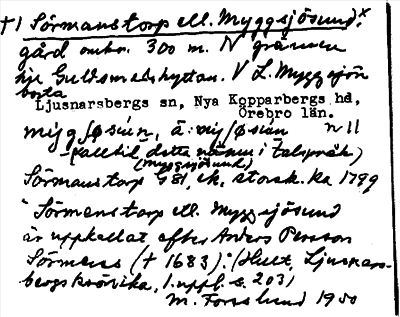 †1 Sörmanstorp ell. Myggsjösund.x
gård omkr. 300 m. N gränsen
hje Guldsmedshyttan. V L. Myggsjön
borta
Ljusnarsbergs sn, Nya Kopparbergs hd,
Örebro län.
myg/øsún, ä: my/øsún n 11
(kalltil detta namn i talspråk)
(Myggsjösund)
Sörmanstorp 1781, ek, storsk. ka 1799
"Sörmanstorp ell. Myggsjösund
är uppkallat efter Anders Persson
Sörman († 1683)": (Hult, Ljusnars-
bergskrönika, 1. uppl. s. 203)
M. Forslund 1950